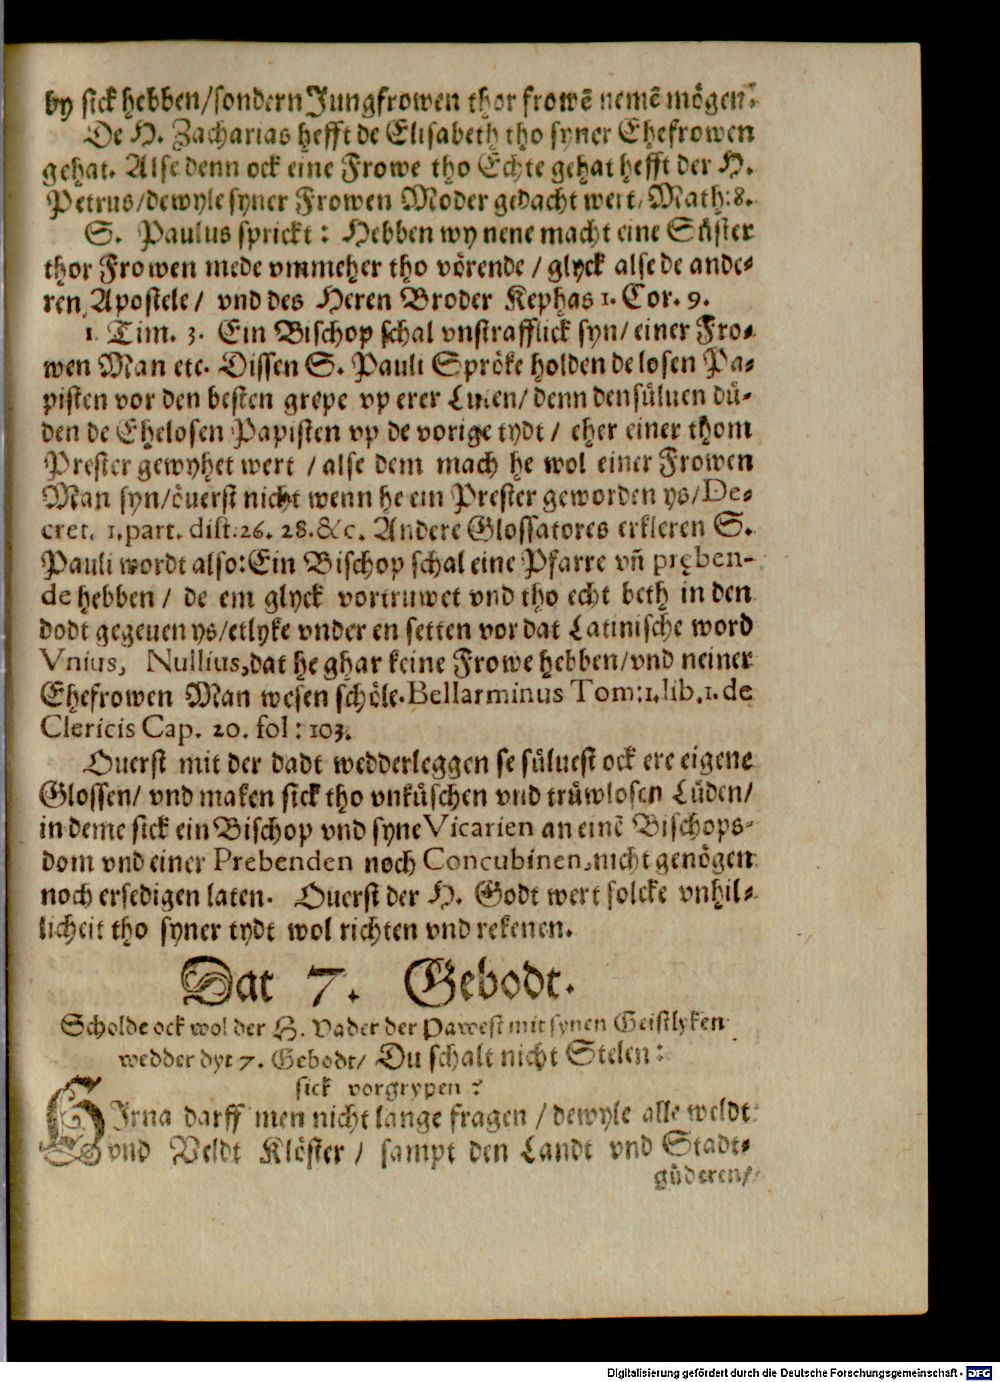 by sick hebben/sondern Jungfrowen thor frowē nemē mögen.
De H. Zacharias hefft de Elisabeth tho syner Ehefrowen
gehat. Alse denn ock eine Frowe tho Echte gehat hefft der H.
Petrus/dewyle syner Frowen Moder gedacht wert/Math:8.
S. Paulus sprickt: Hebben wy nene macht eine Süster
thor Frowen mede vmmeher tho vörende/glyck alse de ande-
ren Apostele/ vnd des Heren Broder Kephas 1. Cor. 9.
1. Tim. 3. Ein Bischop schal vnstrafflick syn/einer Fro-
wen Man etc. Dissen S. Pauli Spröke holden de losen Pa-
pisten vor den besten grepe vp erer Luten/denn densüluen dü-
den de Ehelosen Papisten vp de vorige tydt/ eher einer thom
Prester gewyhet wert /alse dem mach he wol einer Frowen
Man syn/öuerst nicht wenn he ein Prester geworden ys/De-
cret. 1.part. dist:26. 28.&c. Andere Glossatores erkleren S.
Pauli wordt also:Ein Bischop schal eine Pfarre vñ pręben-
de hebben/ de em glyck vortruwet vnd tho echt beth in den
dodt gegeuen ys/etlyke vnder en setten vor dat Latinische word
Vnius, Nullius,dat he ghar keine Frowe hebben/vnd neiner
Ehefrowen Man wesen schöle.Bellarminus Tom:1.lib.1.de
Clericis Cap. 20. fol: 103.
Ouerst mit der dadt wedderleggen se süluest ock ere eigene
Glossen/ vnd maken sick tho vnküschen vnd trüwlosen Lüden/
in deme sick ein Bischop vnd syne Vicarien an einē Bischops-
dom vnd einer Prebenden noch Concubinen,nicht genögen
noch ersedigen laten. Ouerst der H. Godt wert solcke vnhil-
licheit tho syner tydt wol richten vnd rekenen.
Dat 7. Gebodt.
Scholde ock wol der H. Vader der Pawest mit synen Geistlyken
wedder dyt 7. Gebodt/ Du schalt nicht Stelen:
sick vorgrypen?
HIrna darff men nicht lange fragen/dewyle alle weldt
vnd Veldt Klöster/ sampt den Landt vnd Stadt-
güderen/
Digitalisierung gefördert durch die Deutsche Forschungsgemeinschaft - DFG